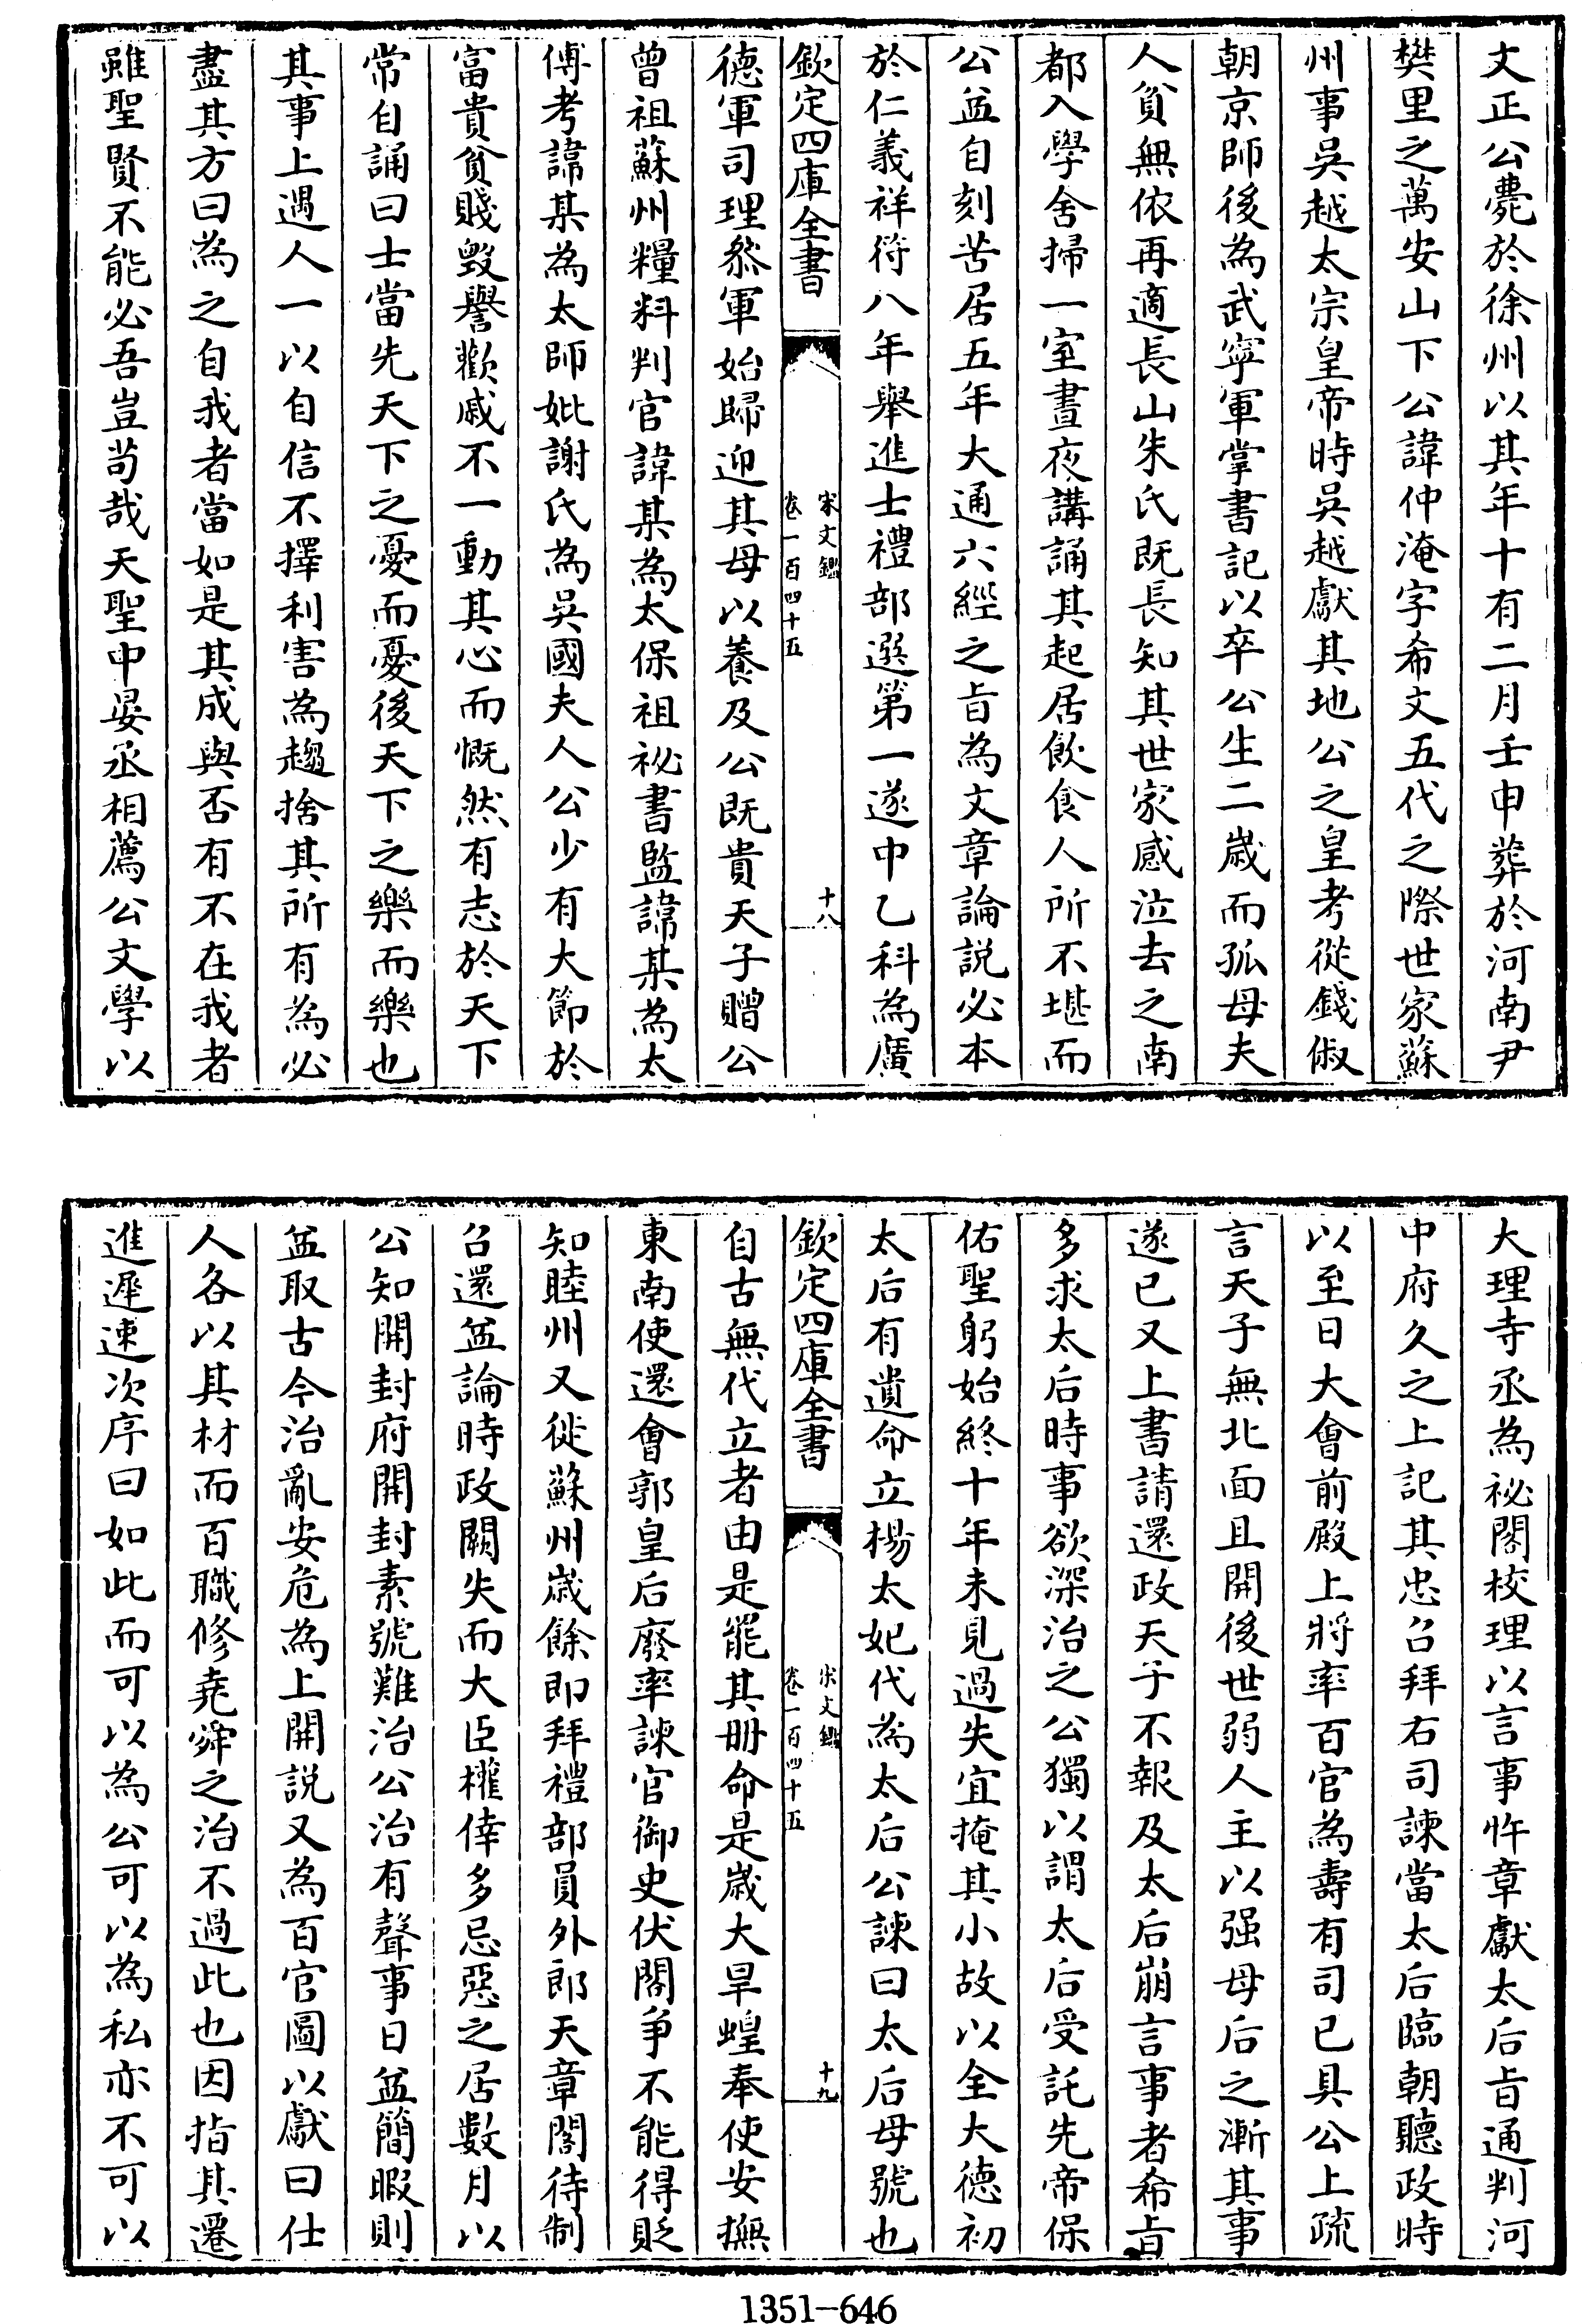 文正公薨於徐州以其年十有二月壬申葬於河南尹
樊里之萬安山下公諱仲淹字希文五代之際世家蘇
州事吳越太宗皇帝時吳越獻其地公之皇考從錢俶
朝京師後為武寧軍掌書記以卒公生二歲而孤母夫
人貧無依再適長山朱氏既長知其世家感泣去之南
都入學舍掃一室晝夜講誦其起居飲食人所不堪而
公益自刻苦居五年大通六經之旨為文章論說必本
於仁義祥符八年舉進士禮部選第一遂中乙科為廣
欽定四庫全書
宋文鑑
卷一百四十五
十八
德軍司理叅軍始歸迎其母以養及公既貴天子贈公
曾祖蘇州糧料判官諱某為太保祖祕書監諱某為太
傅考諱某為太師妣謝氏為吳國夫人公少有大節於
富貴貧賤毀譽歡戚不一動其心而慨然有志於天下
常自誦曰士當先天下之憂而憂後天下之樂而樂也
其事上遇人一以自信不擇利害為趨捨其所有為必
盡其方曰為之自我者當如是其成與否有不在我者
雖聖賢不能必吾豈苟哉天聖中晏丞相薦公文學以
大理寺丞為祕閣校理以言事忤章獻太后旨通判河
中府久之上記其忠召拜右司諫當太后臨朝聽政時
以至日大會前殿上將率百官為壽有司已具公上疏
言天子無北面且開後世弱人主以强母后之漸其事
遂已又上書請還政天子不報及太后崩言事者希旨
多求太后時事欲深治之公獨以謂太后受託先帝保
佑聖躬始終十年未見過失宜掩其小故以全大德初
太后有遺命立楊太妃代為太后公諫曰太后母號也
欽定四庫全書
宋文鑑
卷一百四十五
十九
自古無代立者由是罷其冊命是歲大旱蝗奉使安撫
東南使還會郭皇后廢率諫官御史伏閤爭不能得貶
知睦州又徙蘇州歲餘即拜禮部員外郎天章閣待制
召還益論時政闕失而大臣權倖多忌惡之居數月以
公知開封府開封素號難治公治有聲事日益簡暇則
益取古今治亂安危為上開說又為百官圖以獻曰任
人各以其材而百職修堯舜之治不過此也因指其遷
進遲速次序曰如此而可以為公可以為私亦不可以
1351-646